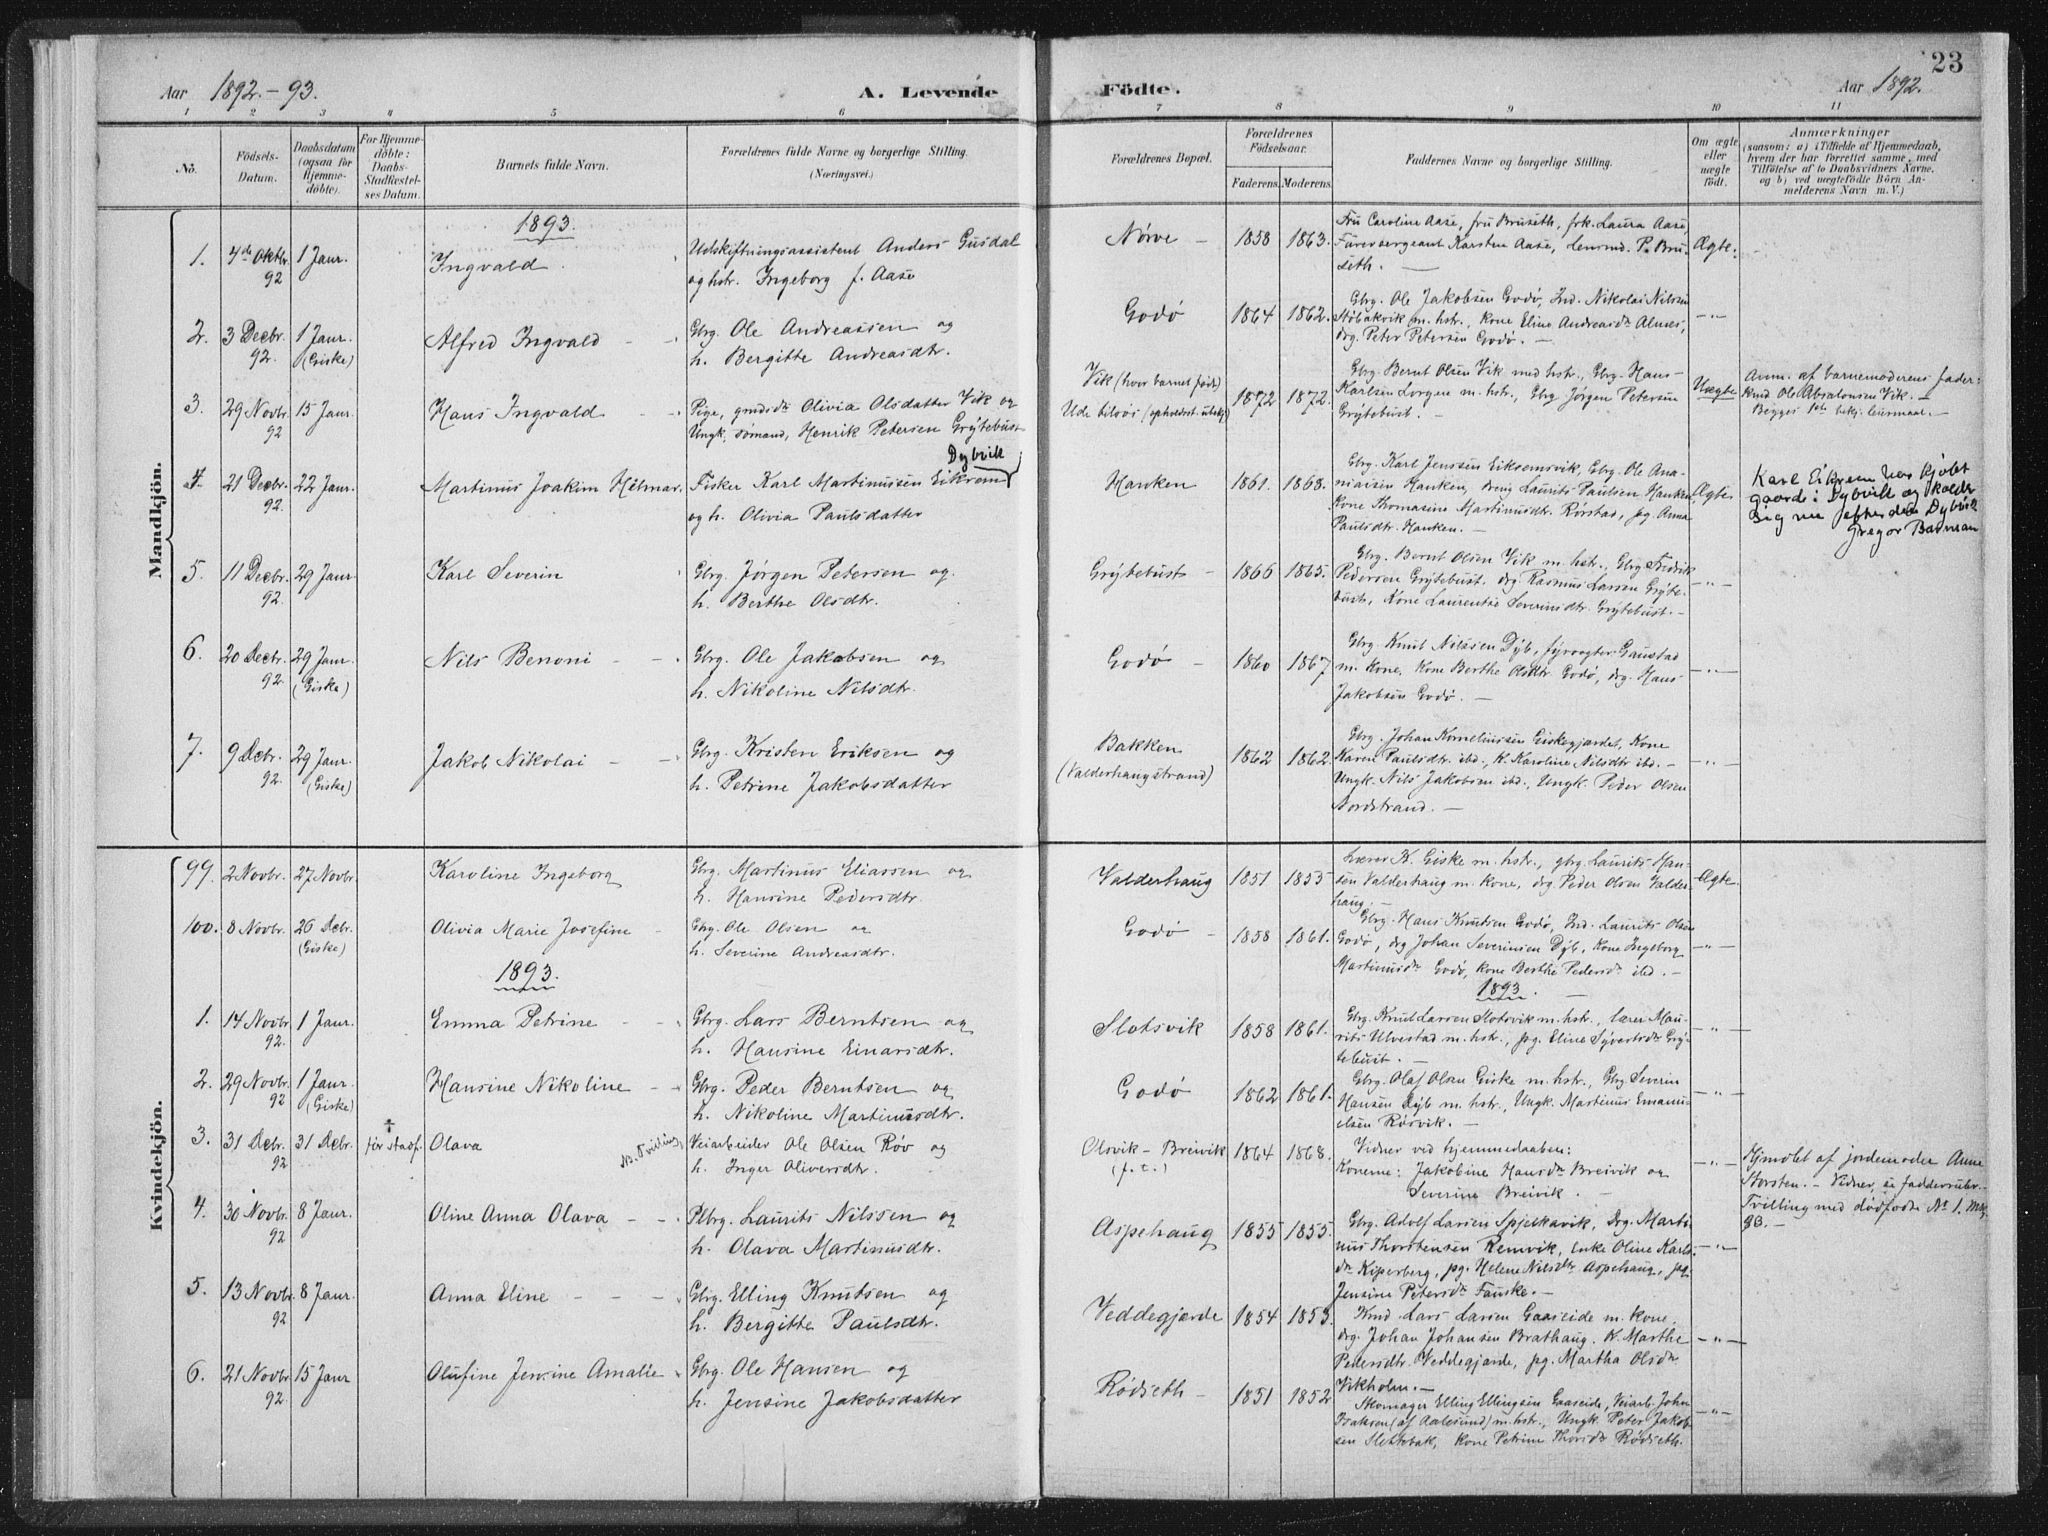 23
Aar 1892.-93.
A. Levende Födte.
Aar 1892.
1 2 3 4 5 6 7 8 9 10 11
No.
Födsels-Datum.
Daabsdatum (ogsaa for Hjemme-döbte).
For Hjemme-döbte: Daabs-Stadfæstel-ses Datum.
Barnets fulde Navn.
Forældrenes fulde Navne og borgerlige Stilling.
(Næringsvei.)
Forældrenes Bopæl.
Forældrenes Födselsaar.
Faderens. Moderens.
Faddernes Navne og borgerlige Stilling.
Om ægte eller uægte födt.
Anmærkninger
(saasom: a) i Tilfælde af Hjemmedaab,
hvem der har forrettet samme, med
Tilföielse af to Daabsvidners Navne,
og b) ved uægtefödte Börn An-
melderens Navn m. V.)
Mandkjön.
1893.
1. 4de Oktbr. 92 1 Jaur. Ingvald
Udskiftningsassistent Anders Gusdal
og hstr. Ingeborg f. Aase
Nørve 1858 1863.
Fru Caroline Aase, fru Bruseth, frk. Laura Aase,
Furersergeant Karsten Aase, Lensmd. P. Bru-
seth.
Ægte.
2. 3 Decbr. 92. 1 Jaur. (Giske) Alfred Ingvald
Gbrg. Ole Andreassen og
h. Bergitte Andreasdtr.
Godø 1864 1862.
Gbrg. Ole Jakobsen Godø, Ind. Nikolai Nilssen
Støbakvik m. hstr., Kone Eline Andreasdr Alnes,
drg. Peter Petersen Godø.
3. 29 Novbr. 92 15 Jaur. Hans Ingvald
Pige, grmdsdr Olivia Olsdatter Vik og
Ungk, sømand, Henrik Petersen Grytebust
Vik (hvor barnet født)
1872 1872.
Gbrg. Bernt Olsen Vik med hstr., Gbrg. Hans
Karlsen Lorgen m. hstr., Gbrg Jørgen Petersen
Grytebust.
Uægte
Anm. af barnemoderens fader:
Kmd Ole Absalonsen Vik.
Begges 1ste bekj. leiermaal.
4. 21 Decbr. 92. 22 Jaur. Martinus Joakim Hilmar
Dybvik
Fisker Karl Martinussen Eikrem
og h. Olivia Paulsdatter
Hanken 1861. 1868.
Gbrg. Karl Jenssen Eiksemsvik, Gbrg. Ole Ana-
niassen Hanken, dreng Laurits Paulsen Hanken,
Kone Thomasine Martinusdtr. Rørstad, pg. Anna
Paulsdtr. Hanken.
Ægte
Karl Eikrem har kjøbt
gaard i Dybvik og kalder
sig nu efter den Dybvik
Gregor Bauman
5. 11 Decbr. 92. 29 Jaur. Karl Severin
Gbrg. Jørgen Petersen og
h. Berthe Olsdtr.
Grytebust 1866 1865.
Gbrg. Bernt Olsen Vik m. hstr., Gbrg Fredrik
Pedersen Grytebust. drg Rasmus Larsen Gryte-
bust, Kone Laurentse Severinsdtr. Grytebust.
6. 20 Decbr. 92. 29 Jaur. (Giske) Nils Benoni
Gbrg. Ole Jakobsen og
h. Nikoline Nilsdtr.
Godø 1860 1867
Gbrg. Knut Nilssen Dyb, fyrvogter Gaustad
m. Kone, Kone Berthe Olsdtr Godø, drg. Hans
Jakobsen Godø.
7. 9 Decbr. 92. 29 Jaur. (Giske) Jakob Nikolai
Gbrg. Kristen Eriksen og
h. Petrine Jakobsdatter
Bakken
(Valderhaugstrand) 1862 1862
Gbrg. Johan Korneliussen Giskegjerdet, Kone
Karen Paulsdtr. ibd., K. Karoline Nilsdtr ibd.
Ungk. Nils Jakobsen ibd., Ungk. Peder Olsen
Nordstrand.
Kvindekjön.
99. 2 Novbr. 27 Novbr Karoline Ingeborg
Gbrg. Martinus Eliassen og
h. Hansine Pedersdtr.
Valderhaug 1851 1855
Lærer K. Giske m. hstr., gbrg. Laurits Han-
sen Valderhaug m. kone, drg. Peder Olsen Valder-
haug.
Ægte
100. 8 Novbr. 26 Debr. (Giske) Olivia Marie Josefine
Gbrg. Ole Olsen og
h. Severine Andreasdtr.
Godø 1858 1861.
Gbrg. Hans Knutsen Godø, Ind. Laurits Olsen
Godø, drg Johan Severinsen Dyb, Kone Ingeborg
Martinusdr Godø, Kone Berthe Pedersdr ibd.
1893.
1893.
1. 14 Novbr 92. 1 Jaur. Emma Petrine
Gbrg. Lars Berntsen og
h. Hansine Einarsdtr.
Slotsvik 1858 1861.
Gbrg. Knut Larsen Slotsvik m. hstr., lærer Mau-
rits Ulvestad m. hstr., pg. Eline Syvertsdr Gry-
tebust.
2. 29 Novbr. 92 1 Jaur. (Giske) Hansine Nikoline
Gbrg. Peder Berntsen og
h. Nikoline Martinusdtr.
Godø 1862 1861.
Gbrg. Olaf Olsen Giske m. hstr., Gbrg Severin
Hansen Dyb m. hstr., Ungk. Martinus Emanu-
elsen Rørvik.
3. 31 Debr. 92 31 Debr. † før stadf. Olava
NB. Tvilling
Veiarbeider Ole Olsen Røv og
h. Inger Oliversdtr.
Olsvik - Breivik
(p. t.) 1864 1868.
Vidner ved hjemmedaaben:
Konerne: Jakobine Hansdr Breivik og
Severine Breivik.
Hjmdbt af jordemoder Anne
Storsten. - Vidner, se fadderrubr.
Tvilling med dødfødt No 1. Mkj.
93.
4. 30 Novbr. 92 8 Jaur. Oline Anna Olava
Plbrg. Laurits Nilssen og
h. Olava Martinusdtr.
Aspehaug 1855 1855.
Gbrg. Adolf Larsen Spjelkavik, Drg. Marti-
nus Thorstensen Remvik, Enke Oline Karls-
dr Kiperberg, pg. Helene Nilsdr Aspehaug, pg.
Jensine Petersdr Fauske.
5. 13 Novbr. 92 8 Jaur. Anna Eline
Gbrg. Elling Knutsen og
h. Bergitte Paulsdtr.
Veddegjerde 1854 1853.
Kmd Lars Larsen Gaaseide m. kone,
drg. Johan Johansen Brathaug, K. Marthe
Pedersdtr. Veddegjerde, pg. Martha Olsdr
Vikholm.
6. 21 Novbr 92. 15 Jaur Olufine Jensine Amalie
Gbrg. Ole Hansen og
h. Jensine Jakobsdatter
Rødseth 1851 1852
Skomager Elling Ellingsen Gaaseide, Veiarb. John
Isaksen (af Aalesund) m. hstr., Ungk. Peter Jakob-
sen Slettebak, Kone Petrine Thorsdr Rødseth.